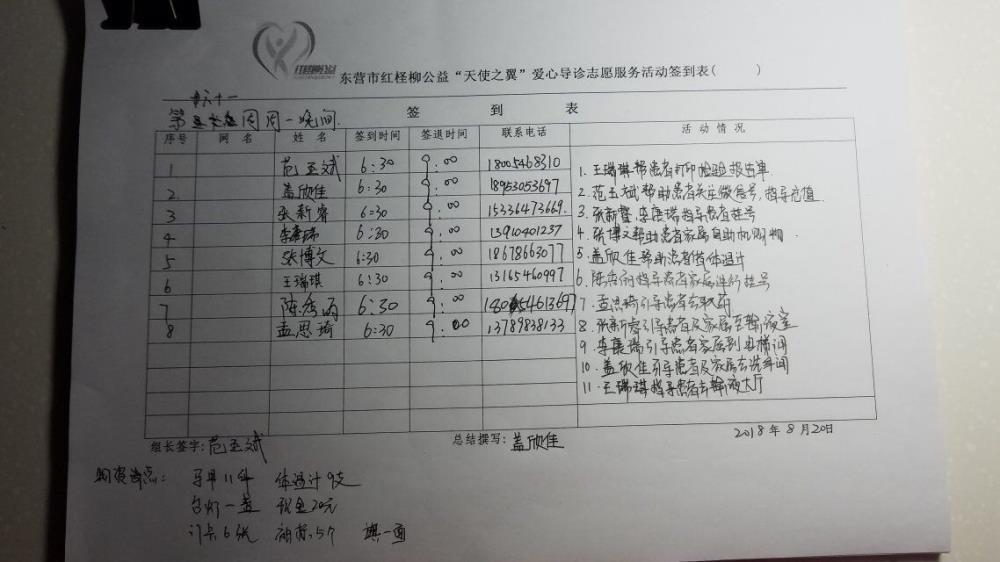 红柽柳公益
东营市红柽柳公益“天使之翼”爱心导诊志愿服务活动签到表( )
六十一
第 周周一晚间
签 到 表
序号 网 名 姓 名 签到时间 签退时间 联系电话 活 动 情 况
1 范玉斌 6:30 9:00 18005468310
2. 盖欣佳 6:30 9:00 18953053697
3 张新睿 6:30 9:00 15336473669.
4 李康瑞 6:30 9:00 13910401237
5 张博文 6:30 9:00 18678663077
6 王瑞琪 6:30 9:00 13165460997
7 陈秀雨 6:30 9:00
8 孟思琦 6:30 9:00 13789838133
1. 王瑞琪帮患者打印检验报告单
2. 范玉斌帮助患者关注微信号,指导充值
3. 张新睿,李康瑞指导患者挂号
4. 张博文帮助患者家属自助机购物
5. 盖欣佳帮助患者量体温计
6. 陈秀雨指导患者家属进行挂号
7. 孟思琦引导患者去取药
8. 张新睿引导患者及家属至输液室
9. 李康瑞引导患者家属到电梯间
10. 盖欣佳引导患者及家属去洗手间
11. 王瑞琪指导患者去输液大厅
组长签字:范玉斌 总结撰写:盖欣佳 2018年8月20日
物资清点: 马甲11件 体温计9支
台灯一盏 现金20元
卡6张 5个 旗一面